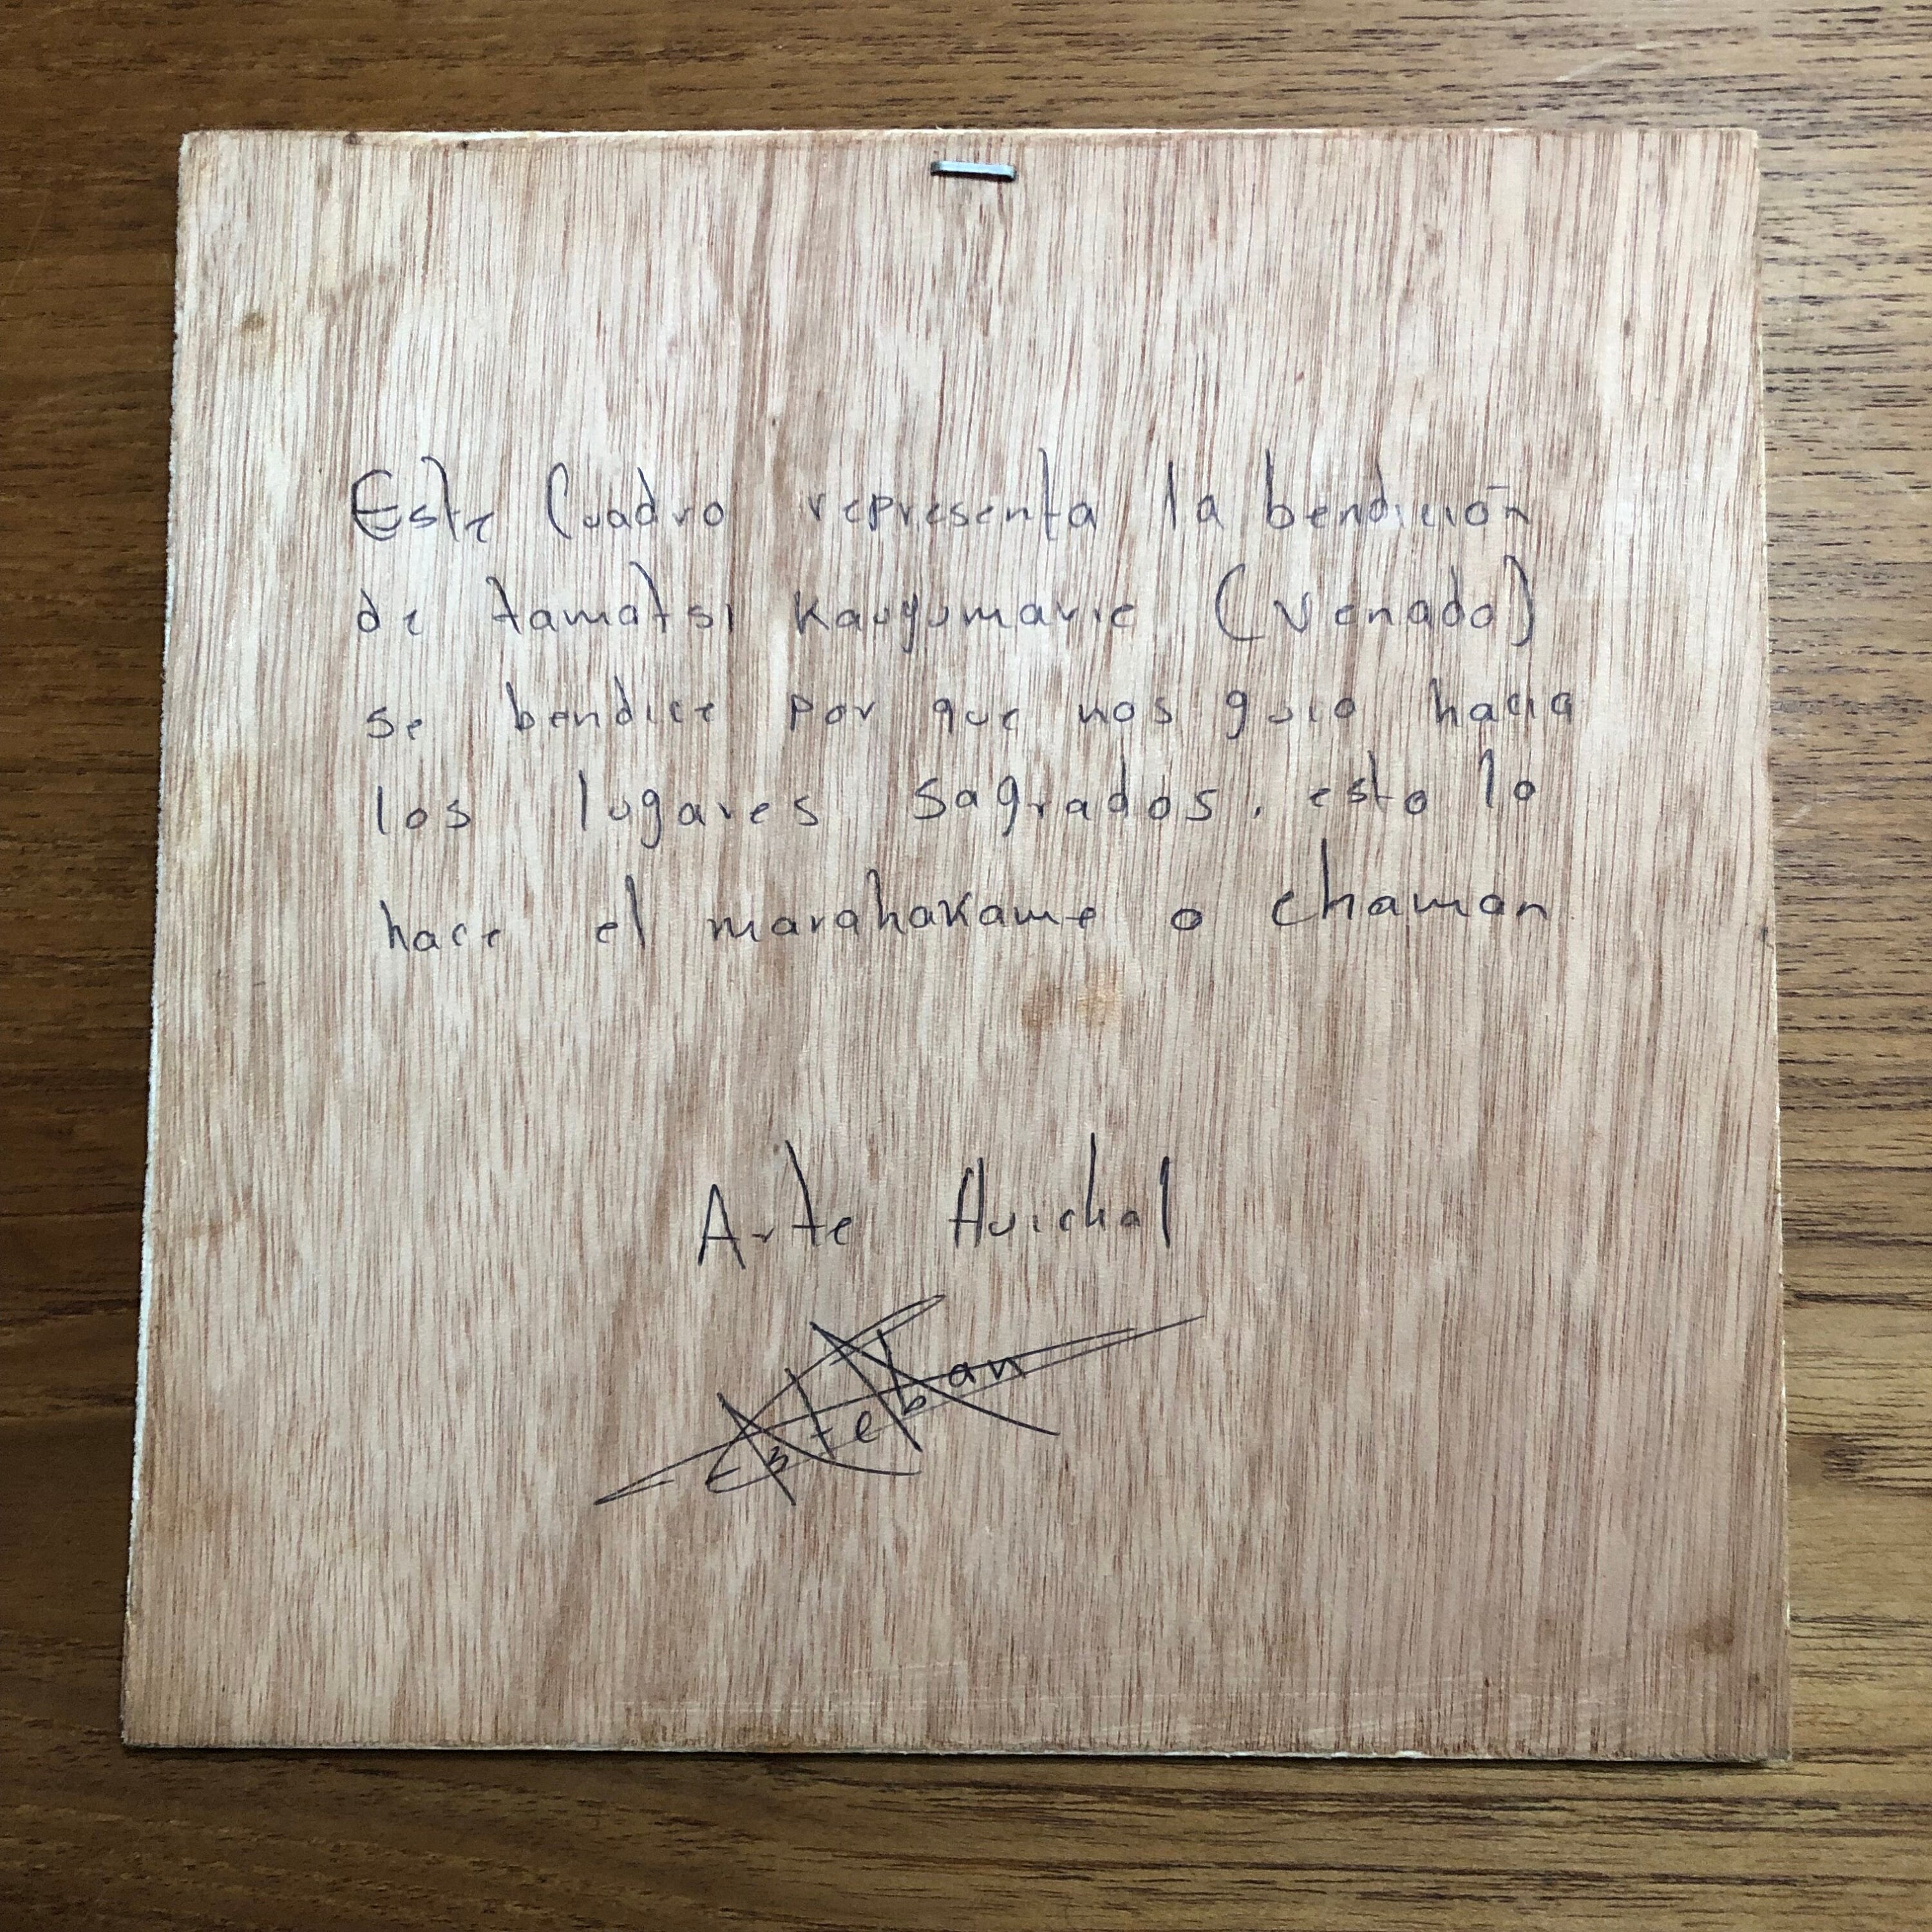 Este Cuadro representa la bendición
de tamatsi kauyumarie (venado)
se bendice por que nos guio hacia
los lugares sagrados. esto lo
hace el marahakame o chaman
Arte Huichol
Esteban